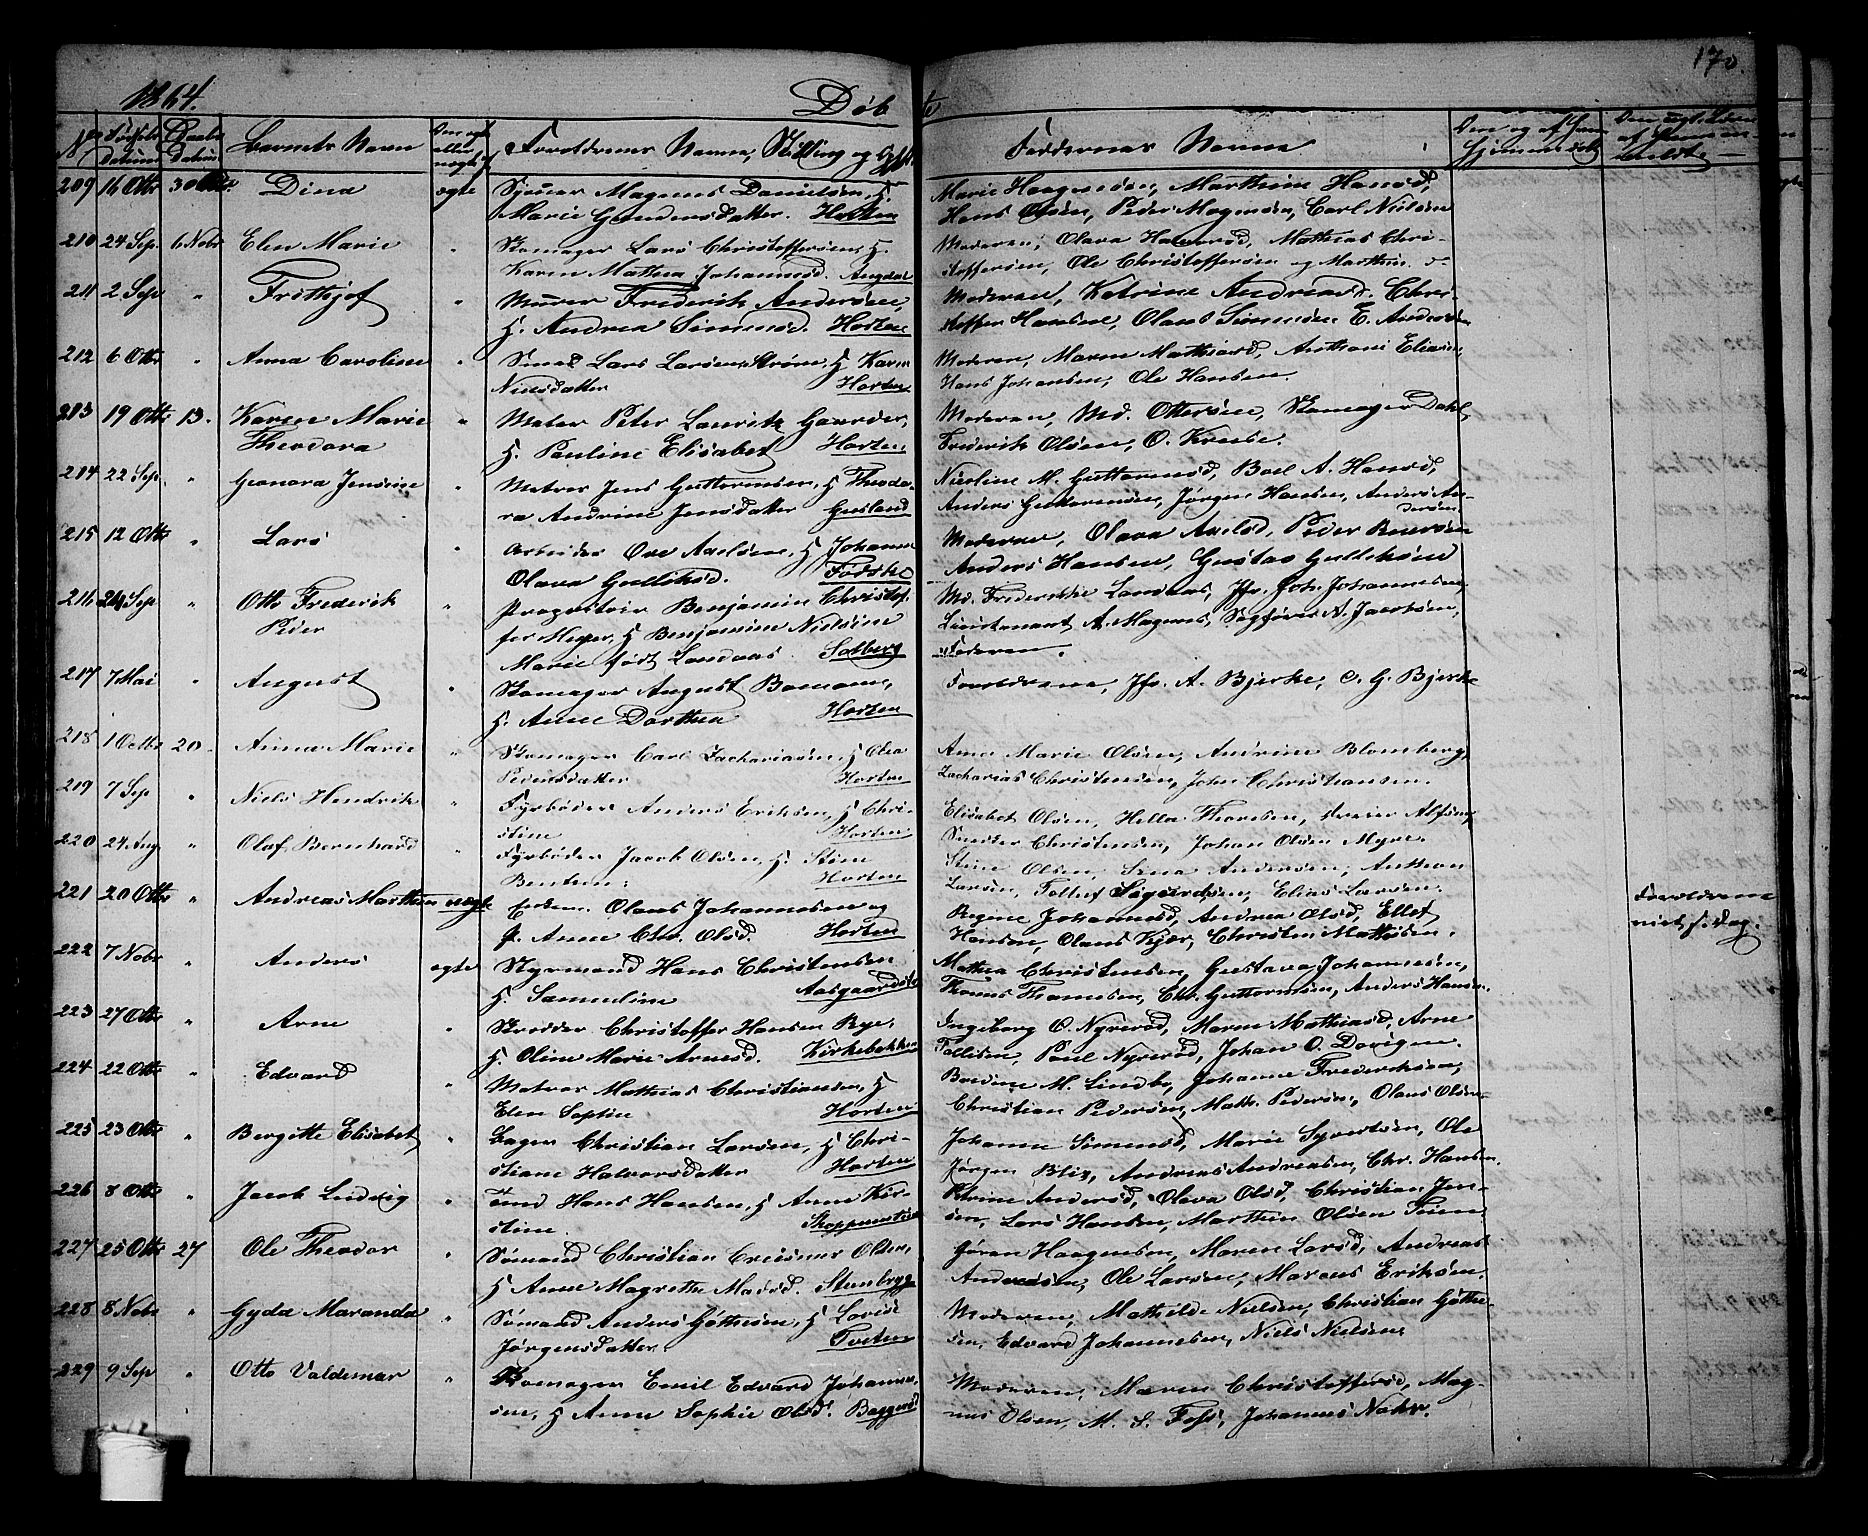 170.
1864. Døbte
No Fødsels Datum Daabs Datum Barnets Navn Om egte eller uegte Forældrenes Navne, Stilling og Faddernes Navne
209 16 Otbr 30 Otbr Dina egte Sjouer Magnus Danielsen, H.
Marie Gundersdatter. Horten
Marie Haagensen, Marthine Hansd,
Hans Olsen, Peder Magnusen, Carl Nielsen
210 24 Sep. 6 Nobr Elen Marie " Skomager Lars Christoffersen, H
Karen Mathea Johannesd. Augdal
Moderen, Olava Haversd, Mathias Chri-
stoffersen, Ole Christoffersen og Marthin do
211 2 Sep " Frithjof " Murer Frederik Andersen,
H. Andrea Simensd. Horten
Moderen, Katrine Andreasd. Chri-
stoffer Hansen, Olaus Simensen E. Andersen
212 6 Otbr " Anna Caroline " Smed Lars Larsen Strøm, H Karen
Nilsdatter Horten
Moderen, Maren Mathiasd, Anthoni Eliasen,
Hans Johansen, Ole Hansen.
213 19 Otbr 13. Karen Marie Theodora " Maler Peter Lauritz Gaarder,
H. Pauline Elisabet Horten
Moderen, Md. Ottersen, Skomager Dahl,
Frederik Olsen, O. Kruse.
214 22 Sep " Geonora Jensine " Matros Jens Guttormsen, H Theodo-
ra Andrine Jensdatter Gusland
Nicoline M. Guttormsd, Boel A. Hansd,
Anders Guttormsen, Jørgen Hansen, Anders An-
dersen
215 12 Otbr " Lars " Arbeider Ove Axelsen, H Johanne
Olava Gulliksd. Falske
Moderen, Olava Axelsd, Peder Iversen
Anders Hansen, Gustav Gulliksen
216 24 Sep " Otto Frederik Peder " Benjamin Christof-
fer Meyer, H Benjamine Nielsine
Marie født Landaas. Solberg
Md. Frederikke Landaas, Jfr. Joh. Johannesen,
Lieutenant A. Magnus, Sagfører N. Jacobsen,
Faderen.
217 7 Mai " August " Skomager August Bomann,
H. Anne Dorthea Horten
Forældrene, Jfr. A. Bjerke, C. G. Bjerke
218 1 Octbr 20. Anna Marie " Skomager Carl Zachariasen, H Olea
Pedersdatter Horten
Anne Marie Olsen, Andrine Blomberg,
Zacharias Christensen, John Christiansen.
219 7 Sep " Niels Hendrik " Fyrbøder Anders Eriksen, H Chri-
stine Horten
Elisabet Olsen, Hella Thoresen, Iver Alfsen,
Christensen, Johan Olsen Myre.
220 24 Aug " Olaf Bernhard " Fyrbøder Jacob Olsen, H. Stine
Bentsen. Horten
Stine Olsen, Anna Andersen, Anthon
Larsen, Tollef Sigurdsen, Elias Larsen.
221 20 Otbr " Andreas Marthin uegte Olaus Johannesen og
P. Anne Chr. Olsd. Horten
Regine Johannesd, Andrea Olsd, Ellef
Hansen, Olaus Kjær, Christen Mathisen.
Forældrene
222 7 Nobr " Anders egte Styrmand Hans Christensen
H. Samueline Aasgaardst.
Mathea Christensen, Gustava Johannesen,
Thomas Thomesen, Chr. Guttormsen, Anders Hansen.
223 27 Otbr " Arne " Skrædder Christoffer Hansen Bye,
H. Oline Marie Arnesd. Kirkebakken
Ingeborg O. Nyrerød, Maren Mathiasd, Arne
Tollefsen, Paul Nyrerød, Johan O. Dovigen.
224 22 Otbr " Edvard " Matros Mathias Christiansen, H
Elen Sophie Horten
Berdine M. Lindbo, Johanne Frederiksen,
Christian Pedersen, Math. Pedersen, Olaus Olsen
225 23 Otbr " Bergitte Elisabet " Bager Christian Larsen, H Chri-
stiane Halvorsdatter Horten
Johanne Simensd, Marie Syvertsen, Ole
Jørgen Blix, Andreas Andreasen, Chr. Hansen.
226 8 Otbr " Jacob Ludvig " Hans Hansen, H Anne Kir-
stine. Skoppumtien
Petrine Andersd, Olava Olsd, Christian Jen-
sen, Lars Hansen, Marthin Olsen
227 25 Otbr 27 Ole Theodor " Sømand Christian Olsen,
H Anne Magrethe Madsd. Stenbrygge
Jøran Haagensen, Maren Larsd, Andreas
Andreasen, Ole Larsen, Marcus Eriksen.
228 8 Nobr " Gyda Maranda " Sømand Anders Gøthesen, H Lovise
Jørgensdatter. Tveten
Moderen, Mathilde Nielsen, Christian Gøthe-
sen, Edvard Johannesen, Niels Nielsen
229 9 Sep " Otto Valdemar " Skomager Emil Edvard Johanne-
sen, H Anne Sophie Olsd. Baggerød
Moderen, Maren Christoffersd, Mag-
nus Olsen, M. S. Foss, Johannes Nohr.